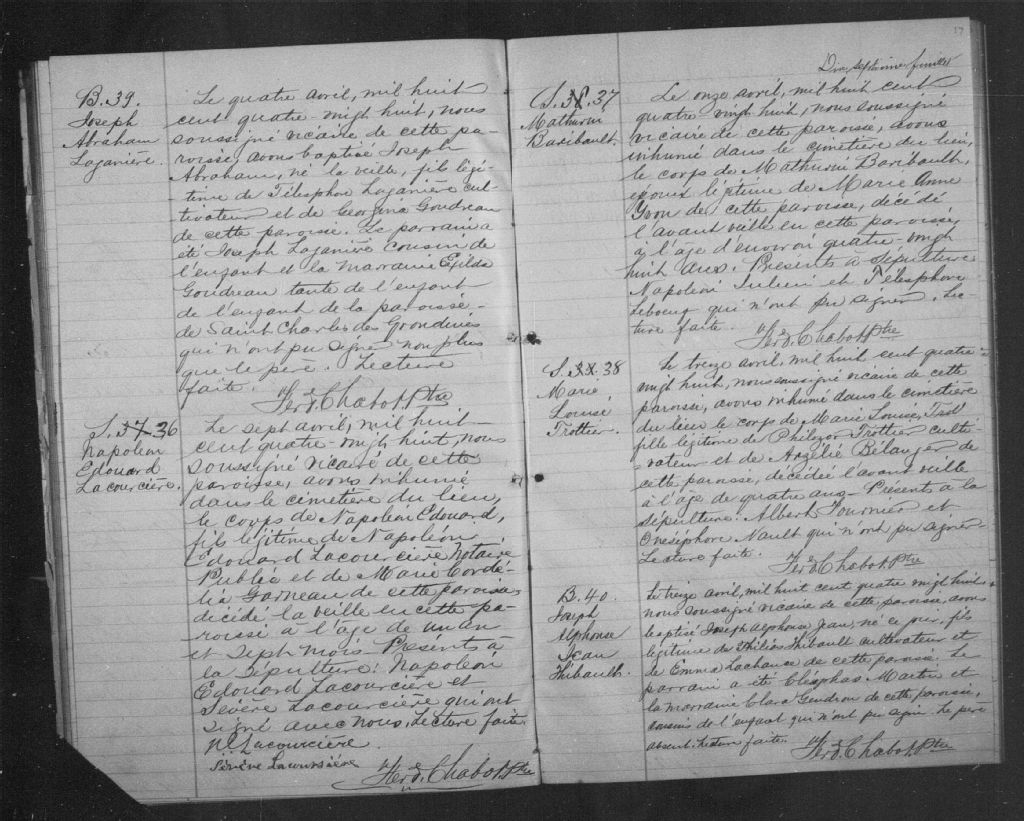 B. 39.
Joseph
Abraham
Laganière.
Le quatre avril, mil huit
cent quatre-vingt huit, nous
soussigné vicaire de cette pa-
roisse, avons baptisé Joseph
Abraham, né la veille, fils légi-
time de Télesphore Laganière cul-
tivateur et de Georgina Goudreau
de cette paroisse. Le parrain a
été Joseph Laganière cousin de
l'enfant et la marraine Exilda
Goudreau tante de l'enfant
de l'enfant de la paroisse
de Saint Charles des Grondines
qui n'ont pu signer non plus
que le père. Lecture
faite.
Ferd. Chabot Ptre
S. 37 36
Napoléon
Edouard
Lacourcière.
Le sept avril, mil huit-
cent quatre-vingt huit, nous
soussigné vicaire de cette
paroisse, avons inhumé
dans le cimetière du lieu,
le corps de Napoléon Edouard,
fils légitime de Napoléon
Edouard Lacourcière Notaire
Public et de Marie Corde-
lia Garneau de cette paroisse,
décédé la veille en cette pa-
roisse à l'âge de un an
et sept mois. Présents à
la sépulture: Napoléon
Edouard Lacourcière et
Sévère Lacourcière qui ont
signé avec nous, lecture faite.
N. E. Lacourcière
Sévère Lacoursière
Ferd. Chabot Ptre
17
Dix septième feuillet
S. 38. 37
Mathurin
Baribault.
Le onze avril, mil huit cent
quatre vingt huit, nous soussigné
vicaire de cette paroisse, avons
inhumé dans le cimetière du lieu,
le corps de Mathurin Baribault,
époux légitime de Marie Anne
Yvon de cette paroisse, décédé
l'avant veille en cette paroisse,
à l'âge d'environ quatre-vingt
huit ans. Présents à sépulture
Napoléon Julien et Télesphore
Leboeuf qui n'ont pu signer. Lec-
ture faite.
Ferd. Chabot Ptre
S. 38
Marie
Louise
Trottier.
Le treize avril, mil huit cent quatre-
vingt huit, nous soussigné vicaire de cette
paroisse, avons inhumé dans le cimetière
du lieu le corps de Marie Louise, Trott
fille légitime de Philozor Trottier culti-
vateur et de Arzélie Bélanger de
cette paroisse, décédée l'avant veille
à l'âge de quatre ans. Présents à la
sépulture. Albert Fournier et
Onésiphore Nault qui n'ont pu signer
Lecture faite.
Ferd. Chabot Ptre
B. 40.
Joseph
Alphonse
Jean
Thibault.
Le treize avril, mil huit cent quatre vingt huit
nous soussigné vicaire de cette paroisse, avons
baptisé Joseph Alphonse Jean, né ce jour, fils
légitime de Philéas Thibault cultivateur et
de Emma Lachance de cette paroisse. Le
parrain a été Cléophas Martin et
la marraine Clara Gendron de cette paroisse,
cousins de l'enfant qui n'ont pu signer. Le père
absent. Lecture faite.
Ferd. Chabot Ptre